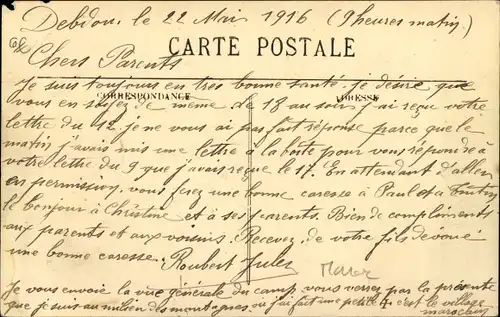 Debdou, le 22 Mai 1916 (9 heures matin)
CARTE POSTALE
Chers Parents
Je suis toujours en très bonne santé. je désire que
CORRESPONDANCE
ADRESSE
vous en soyez de même de 18 au soir, j'ai reçu votre
lettre du 12. je ne vous ai pas fait réponse parce que le
matin j'avais mis une lettre à la boîte pour vous répondre à
votre lettre du 9 que j'avais reçue le 17. En attendant d'aller
en permission, vous ferez une bonne caresse à Paul et à
le bonjour à Christine et à ses parents. Bien de compliments
aux parents et aux voisins. Recevez, de votre fils dévoué
une bonne caresse. Roubert Jules
Maroc
Je vous envoie la vue générale du camp vous verrez par la présente
que je suis au milien des montagnes, où j'ai fait une petite 4. c'est le village
marocain